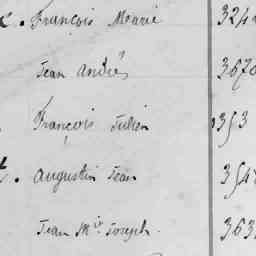 . François Marie 324
Jean André 3670
François Julien 353
. Augustin Jean 354
Jean Mie Joseph. 363